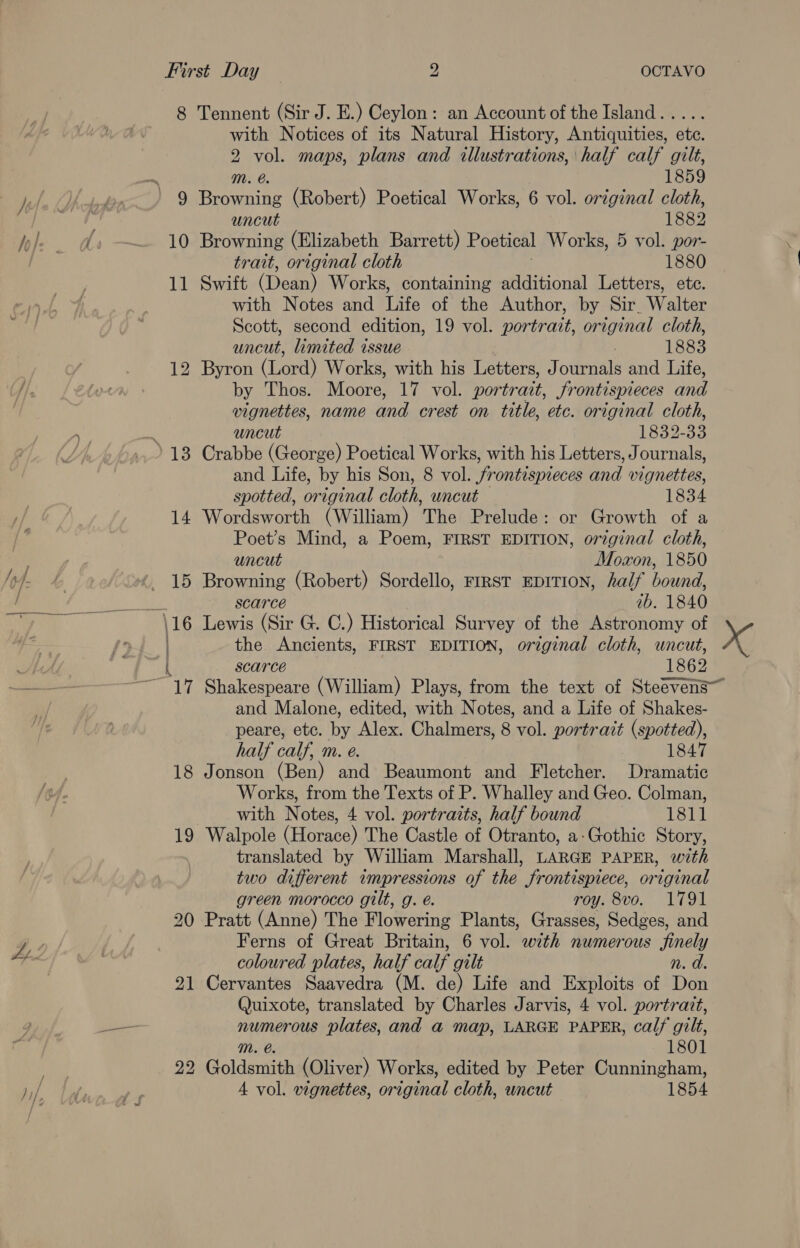 First Day 2 OCTAVO
8 Tennent (Sir J. E.) Ceylon: an Account of the Island.....
with Notices of its Natural History, Antiquities, etc.
2 vol. maps, plans and illustrations, half calf gilt,
m. e. 1859
9 Browning (Robert) Poetical Works, 6 vol. original cloth,
uncut 1882
10 Browning (Elizabeth Barrett) Poetical Works, 5 vol. por-
trait, original cloth 1880
11 Swift (Dean) Works, containing additional Letters, etc.
with Notes and Life of the Author, by Sir Walter
Scott, second edition, 19 vol. portrait, original cloth,
uncut, limited issue 1883
12 Byron (Lord) Works, with his Letters, Journals and Life,
by Thos. Moore, 17 vol. portrait, frontispieces and
vignettes, name and crest on title, etc. original cloth,
uncut 1832-33
13 Crabbe (George) Poetical Works, with his Letters, Journals,
and Life, by his Son, 8 vol. frontispieces and vignettes,
spotted, original cloth, uncut 1834
14 Wordsworth (William) The Prelude: or Growth of a
Poet's Mind, a Poem, FIRST EDITION, original cloth,
uncut Moxon, 1850
15 Browning (Robert) Sordello, FIRST EDITION, half bound,
scarce ib. 1840
16 Lewis (Sir G. C.) Historical Survey of the Astronomy of
the Ancients, FIRST EDITION, original cloth, uncut,
scarce 1862
17 Shakespeare (William) Plays, from the text of Steevens
and Malone, edited, with Notes, and a Life of Shakes-
peare, etc. by Alex. Chalmers, 8 vol. portrait (spotted),
half calf, m. e. 1847
18 Jonson (Ben) and Beaumont and Fletcher. Dramatic
Works, from the Texts of P. Whalley and Geo. Colman,
with Notes, 4 vol. portraits, half bound 1811
19 Walpole (Horace) The Castle of Otranto, a Gothic Story,
translated by William Marshall, LARGE PAPER, with
two different impressions of the frontispiece, original
green morocco gilt, g. e. roy. 8vo. 1791
20 Pratt (Anne) The Flowering Plants, Grasses, Sedges, and
Ferns of Great Britain, 6 vol. with numerous finely
coloured plates, half calf gilt n. d.
21 Cervantes Saavedra (M. de) Life and Exploits of Don
Quixote, translated by Charles Jarvis, 4 vol. portrait,
numerous plates, and a map, LARGE PAPER, calf gilt,
m. e. 1801
22 Goldsmith (Oliver) Works, edited by Peter Cunningham,
4 vol. vignettes, original cloth, uncut 1854